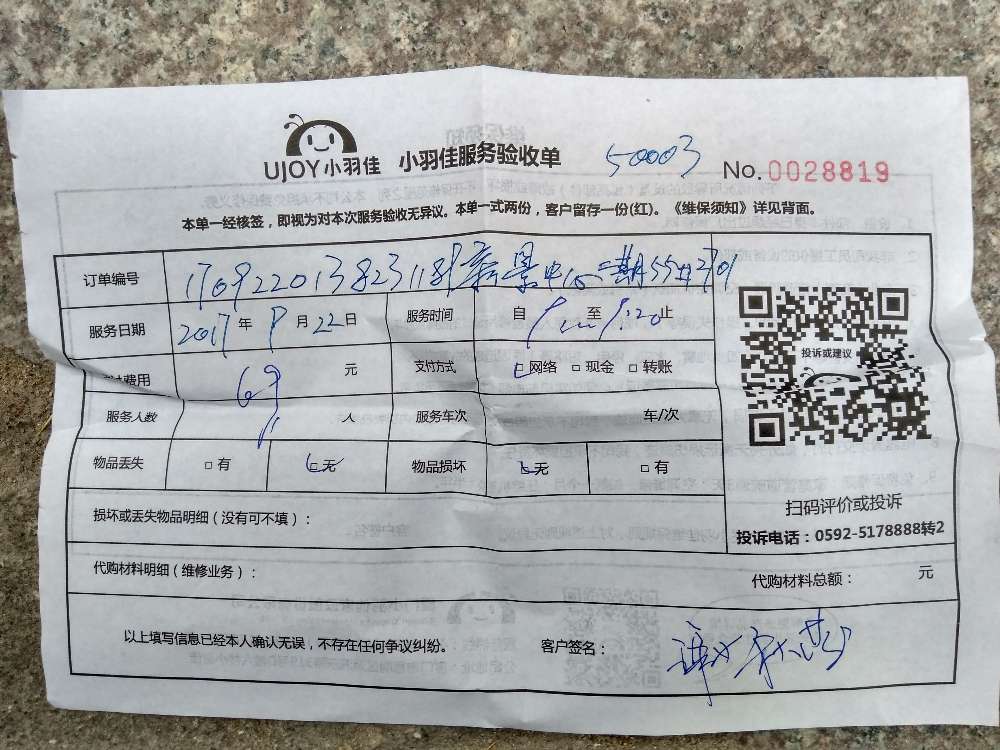 UJOY小羽佳 小羽佳服务验收单 50003 No.0028819
本单一经核签，即视为对本次服务验收无异议。本单一式两份，客户留存一份(红)。《维保须知》详见背面。
订单编号
服务日期 2017年9月22日 服务时间 自 至 止
费用 69 元 支付方式 □网络 □现金 □转账
服务人数 人 服务车次 车/次
物品丢失 □有 □无 物品损坏 □无 □有
投诉或建议
扫码评价或投诉
投诉电话：0592-5178888转2
损坏或丢失物品明细（没有可不填）：
代购材料明细（维修业务）： 代购材料总额： 元
以上填写信息已经本人确认无误，不存在任何争议纠纷。 客户签名：